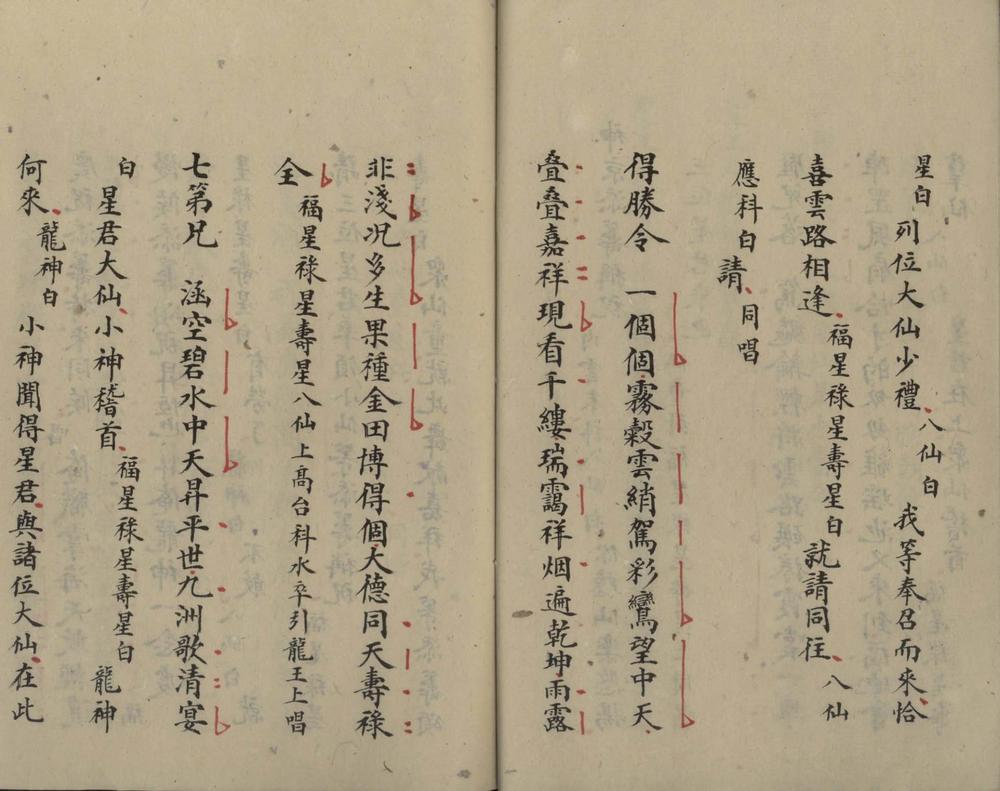 星白 列位大仙少禮、八仙白 我等奉召而來、恰
喜雲路相逢、福星祿星壽星白 就請同往、八仙
應科白 請、同唱
得勝令 一個個霧縠雲綃駕彩鸞望中天、
疊疊嘉祥現看千縷瑞靄祥烟遍乾坤雨露
非淺况多生果種金田博得個大德同天壽祿
全 福星祿星壽星八仙上高台科水卒引龍王上唱
七第兄 涵空碧水中天昇平世九洲歌清宴
白 星君大仙、小神稽首、福星祿星壽星白 龍神
何來、龍神白 小神聞得星君、與諸位大仙、在此